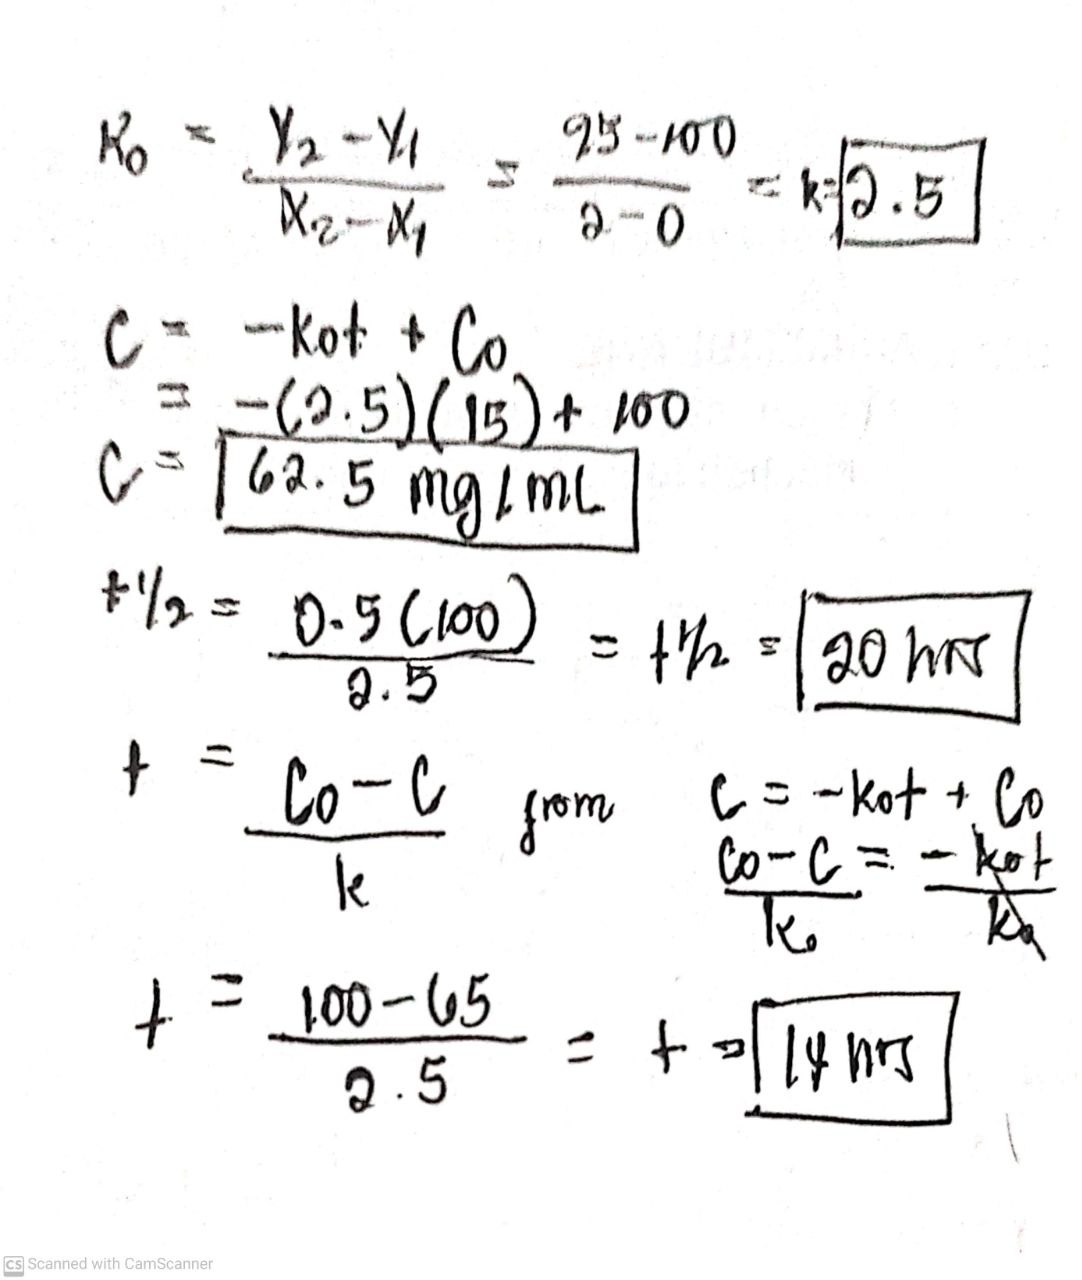 K₀ = Y₂ - Y₁ / X₂ - X₁ = 95 - 100 / 2 - 0 = k = 2.5
C = -K₀t + C₀
= -(2.5)(15) + 100
C = 62.5 mg/mL
t½ = 0.5(100) / 2.5 = t½ = 20 hrs
t = C₀ - C / k from C = -k₀t + C₀
C₀ - C / k₀ = -k₀t / k₀
t = 100 - 65 / 2.5 = t = 14 hrs
CS Scanned with CamScanner